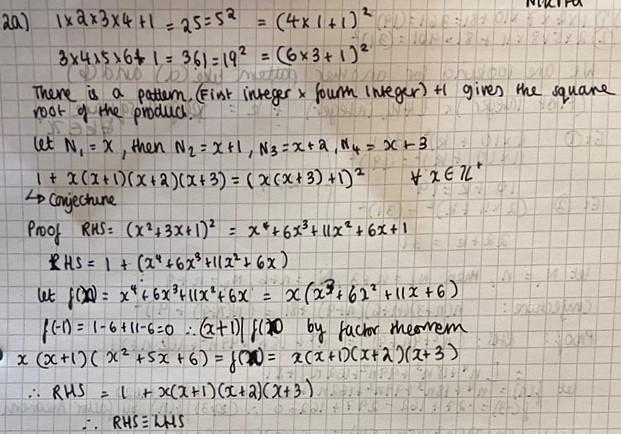 2a) 1×2×3×4+1 = 25 = 5² = (4×1+1)²
3×4×5×6+1 = 361 = 19² = (6×3+1)²
There is a pattern. (First integer × fourth integer) +1 gives the square
root of the product.
Let N₁ = x, then N₂ = x+1, N₃ = x+2, N₄ = x+3
1 + x(x+1)(x+2)(x+3) = (x(x+3)+1)² ∀ x ∈ ℤ⁺
↳ Conjecture
Proof RHS = (x²+3x+1)² = x⁴+6x³+11x²+6x+1
RHS = 1 + (x⁴+6x³+11x²+6x)
let f(x) = x⁴+6x³+11x²+6x = x(x³+6x²+11x+6)
f(-1) = 1-6+11-6=0 ∴ (x+1)| f(x) by factor theorem
x(x+1)(x²+5x+6) = f(x) = x(x+1)(x+2)(x+3)
∴ RHS = 1 + x(x+1)(x+2)(x+3)
∴ RHS ≡ LHS